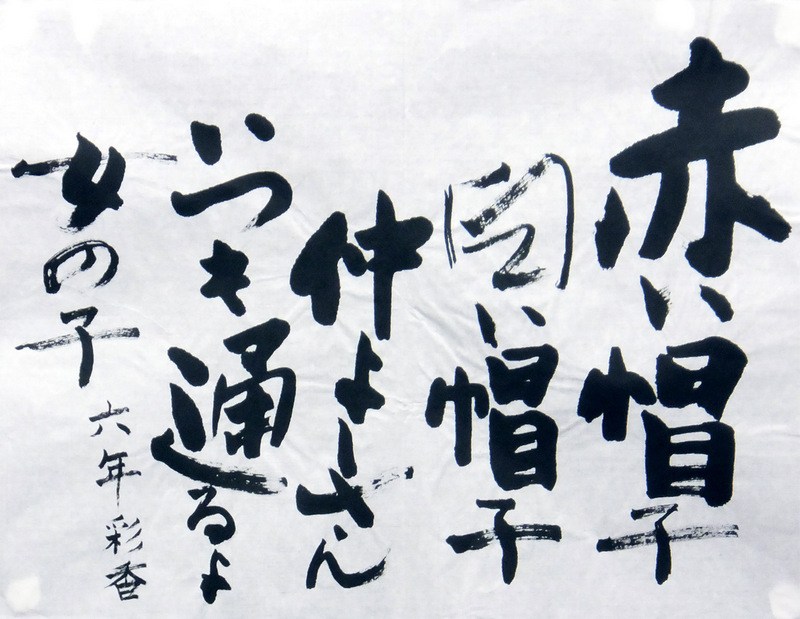 赤い帽子
白い帽子
仲よしさん
いつも通るよ
女の子
六年 彩香